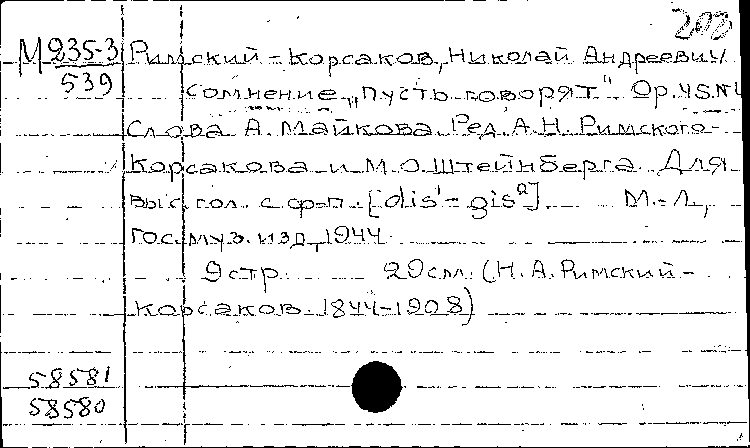 202
М 235-3 Римский-Корсаков, Николай Андреевич
539 Сомнение „Пусть говорят" Op. 45. №1
Слова А. Майкова. Ред. А. Н. Римского-
Корсакова и М. О. Штейнберга. Для
выс. гол. с ф-п. [dis¹-gis²]. М.-Л.,
Гос. муз. изд, 1944
9 стр. 29 см. (Н. А. Римский-
Корсаков 1844-1908)
58581
58580